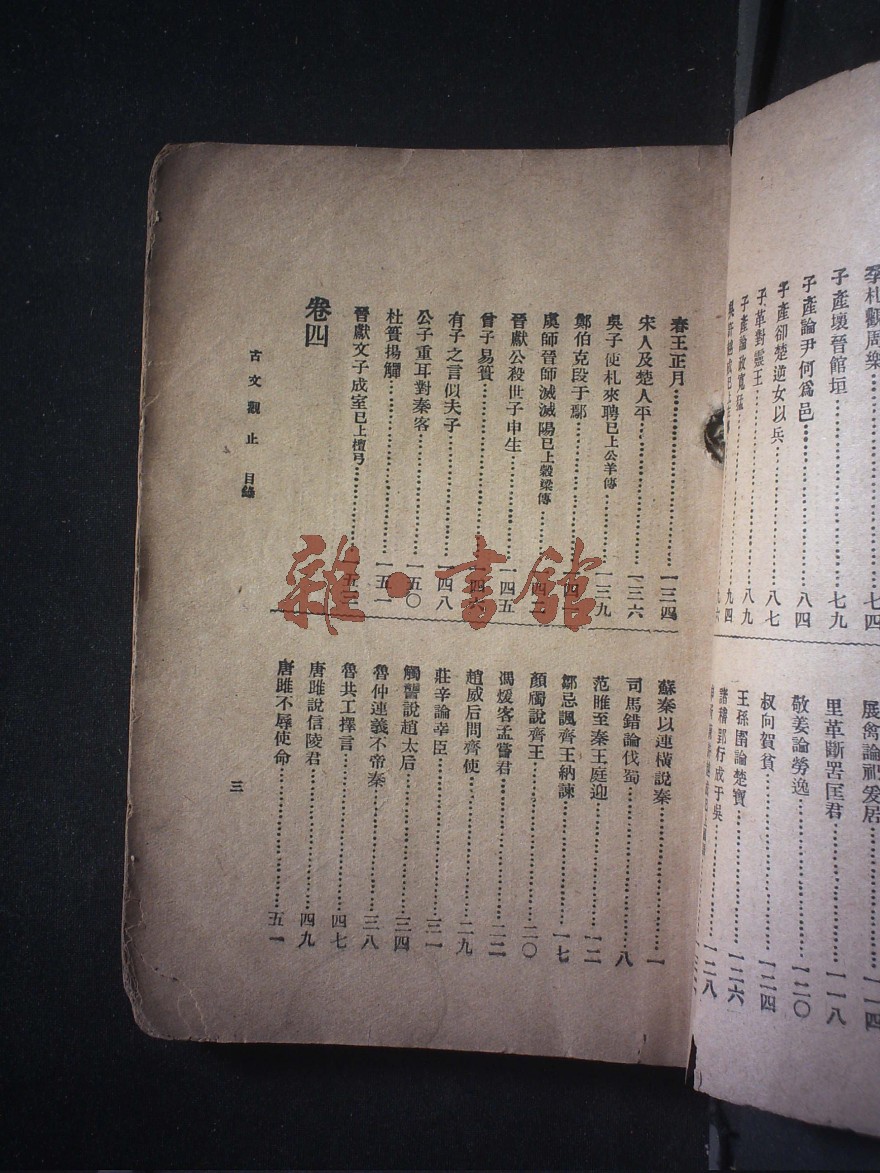 季札觀周樂……七四
子產壞晉館垣……七九
子產論尹何爲邑……八四
子產卻楚逆女以兵……八七
子革對靈王……八九
子產論政寬猛……九四
展禽論祀爰居……一一四
里革斷罟匡君……一一八
敬姜論勞逸……一二〇
叔向賀貧……一二四
王孫圉論楚寶……一二六
諸稽郢行成于吳……一二八
春王正月……一三四
宋人及楚人平……一三六
吳子使札來聘已上公羊傳……一三九
鄭伯克段于鄢……一四
虞師晉師滅滅陽已上穀梁傳……一四二
晉獻公殺世子申生……一四五
曾子易簀……一四六
有子之言似夫子……一四八
公子重耳對秦客……一五〇
杜簣揚觶……一五一
晉獻文子成室已上檀弓……一五三
卷四
蘇秦以連橫說秦……一
司馬錯論伐蜀……八
范雎至秦王庭迎……一二
鄒忌諷齊王納諫……一七
顏斶說齊王……二〇
馮煖客孟嘗君……二二
趙威后問齊使……二九
莊辛論幸臣……三一
觸讋說趙太后……三四
魯仲連義不帝秦……三八
魯共工擇言……四七
唐雎說信陵君……四九
唐雎不辱使命……五一
古文觀止 目錄
三
雜·書館